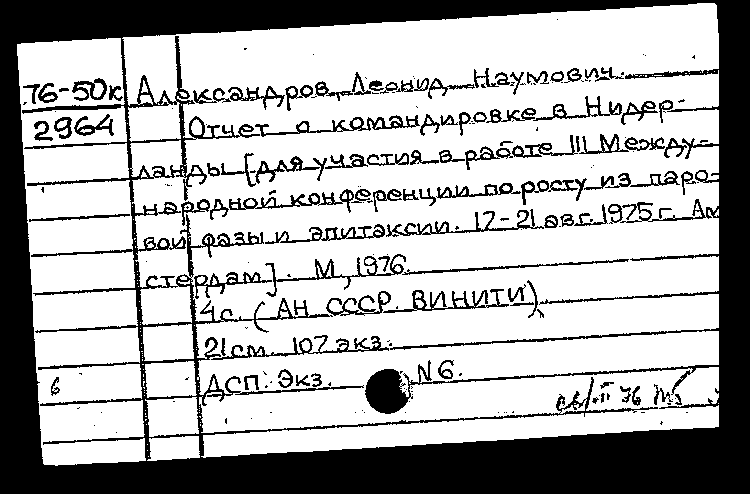 76-50к Александров, Леонид Наумович.
2964 Отчет о командировке в Нидер-
ланды [для участия в работе III Между-
народной конференции по росту из паро-
вой фазы и эпитаксии. 17-21 авг. 1975 г. Ам
стердам]. М., 1976.
4 с. (АН СССР. ВИНИТИ).
21 см. 107 экз.
6 ДСП. Экз. N 6.
76